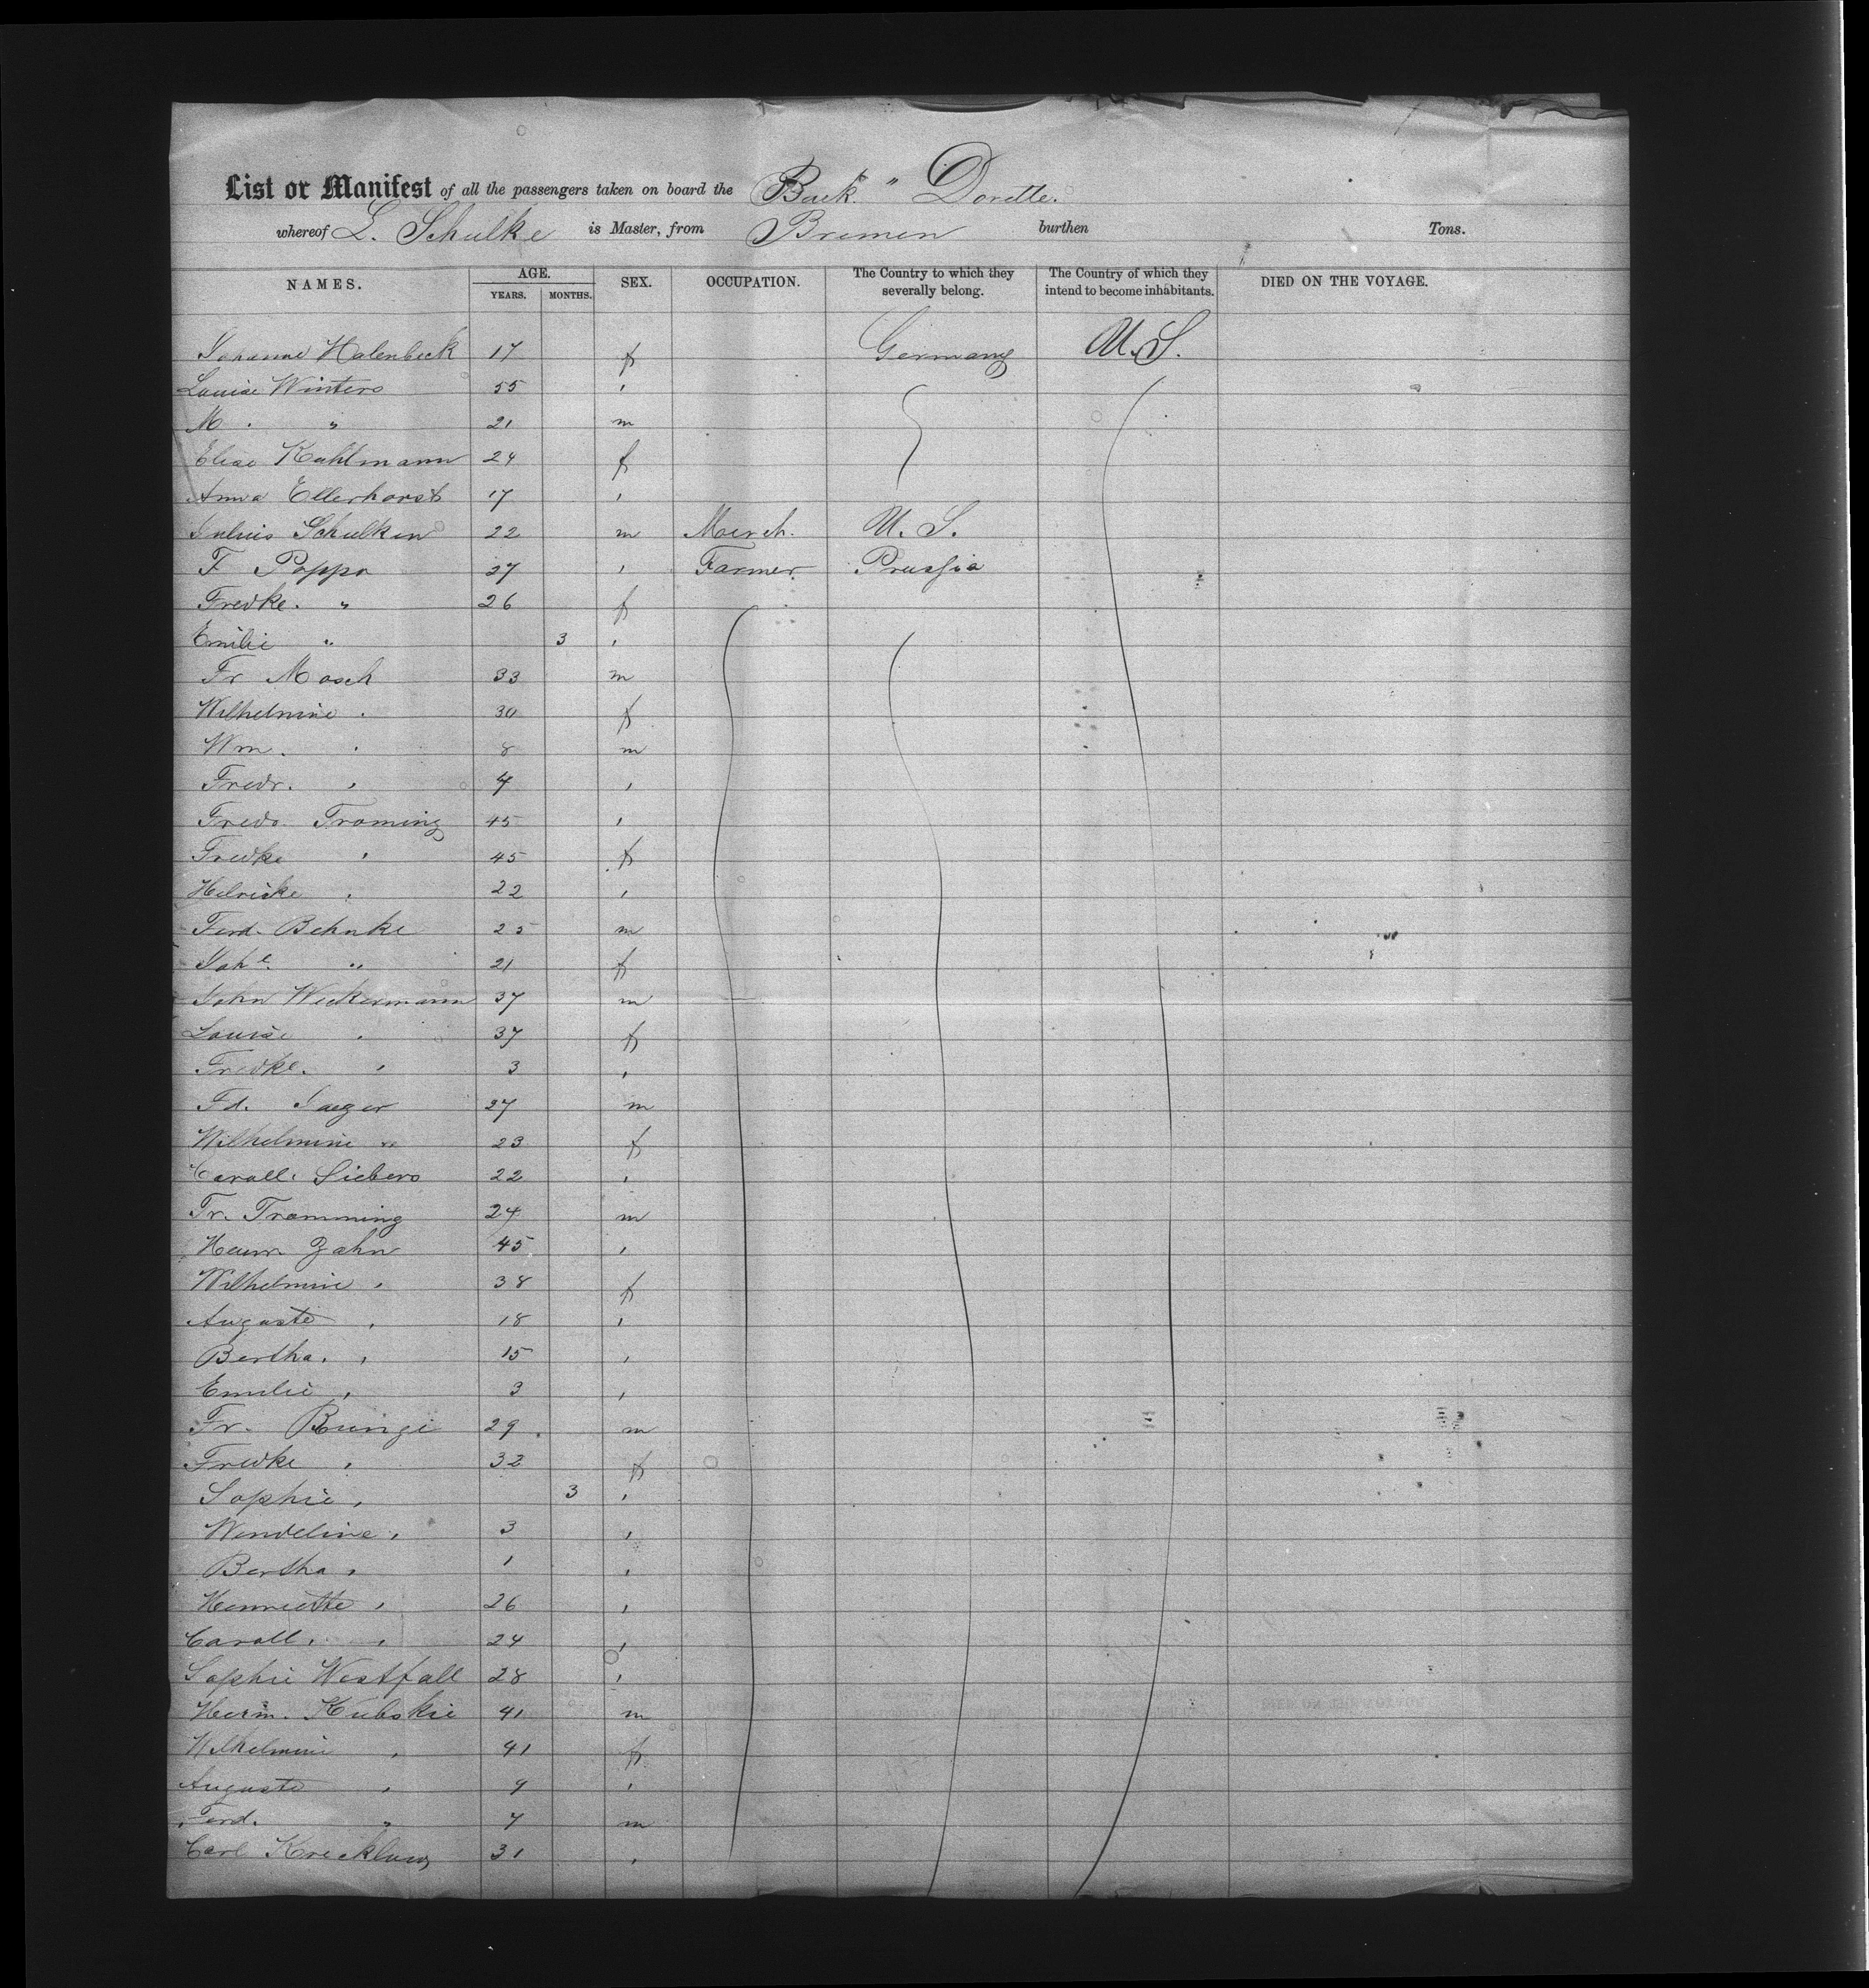 List or Manifest of all the passengers taken on board the Bark " Dorette.
whereof L. Schulke is Master, from Bremen burthen Tons.
NAMES. AGE. YEARS. MONTHS. SEX. OCCUPATION. The Country to which they severally belong. The Country of which they intend to become inhabitants. DIED ON THE VOYAGE.
Johanne Halenbeck 17 f Germany U.S.
Louise Winters 55 "
M. " 21 m
Elise Kuhlmann 24 f
Anna Ellerhorst 17 "
Julius Schulken 22 m Merch. U. S.
F Poppa 27 " Farmer. Prussia
Fredke. " 26 f
Emilie " 3 "
Fr Mosch 33 m
Wilhelmine " 30 f
Wm. " 8 m
Fredr. " 4 "
Fredr. Troming 45 "
Fredke " 45 f
" 22 "
Ferd. Behnke 25 m
Johe. " 21 f
John Weckermann 37 m
Louise " 37 f
Fredke. " 3 "
Fd. Jaeger 27 m
Wilhelmine " 23 f
Caroll. Siebers 22 "
Fr. Tromming 24 m
Zahn 45 "
Wilhelmine " 38 f
Auguste " 18 "
Bertha. " 15 "
Emilie " 3 "
Fr. Bunge 29 m
Fredke " 32 f
Sophie " 3 "
Wendeline " 3 "
Bertha " 1 "
Henriette " 26 "
Caroll. " 24 "
Sophie Westfall 28 "
Herm. Kubskie 41 m
Wilhelmine " 41 f
Auguste " 9 "
Ferd. " 7 m
Carl 31 "